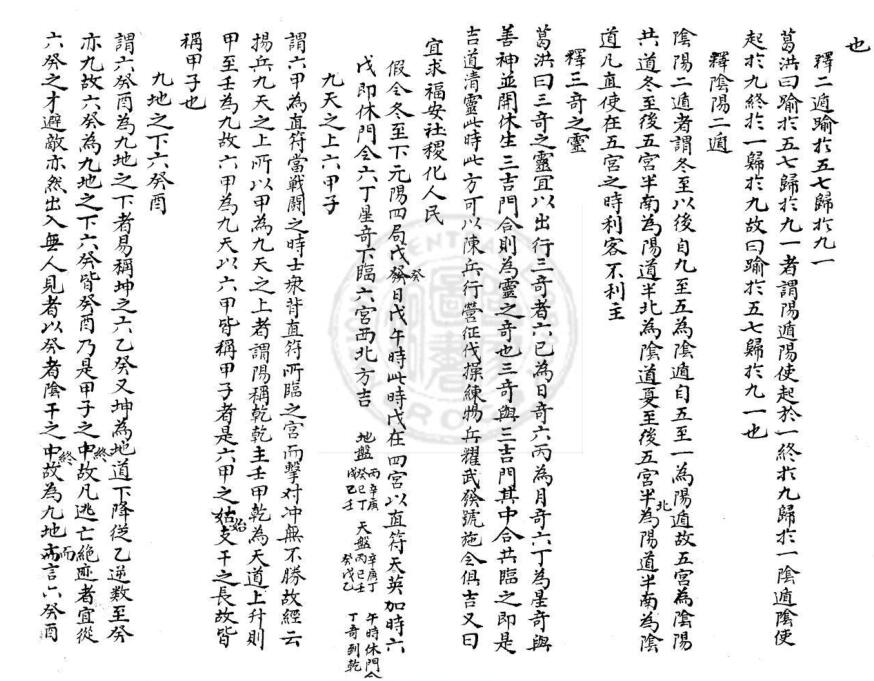 也
釋二遁踰於五七歸於九一
葛洪曰踰於五七歸於九一者謂陽遁陽使起於一終於九歸於一陰遁陰使
起於九終於一歸於九故曰踰於五七歸於九一也
釋陰陽二遁
陰陽二遁者謂冬至以後自九至五為陰遁自五至一為陽遁故五宮為陰陽
共道冬至後五宮半南為陽道半北為陰道夏至後五宮半北為陽道半南為陰
道凡直使在五宮之時利客不利主
釋三奇之靈
葛洪曰三奇之靈宜以出行三奇者六已為日奇六丙為月奇六丁為星奇與
善神並開休生三吉門合則為靈之奇也三奇與三吉門其中合共臨之即是
吉道清靈此時此方可以陳兵行營征伐操練物兵耀武發號施令俱吉又曰
宜求福安社稷化人民
假令冬至下元陽四局戊發癸日戊午時此時戊在四宮以直符天英加時六
戊即休門合六丁星奇下臨六宮西北方吉
地盤
丙辛庚
癸巳丁
戊乙壬
天盤
辛庚丁
丙巳壬
癸戊乙
午時休門合
丁奇到乾
九天之上六甲子
謂六甲為直符當戰鬪之時士衆背直符所臨之宮而擊对冲無不勝故經云
揚兵九天之上所以甲為九天之上者謂陽稱乾乾主壬甲乾為天道上升則
甲至壬為九故六甲為九天以六甲皆稱甲子者是六甲之姑始支干之長故皆
稱甲子也
九地之下六癸酉
謂六癸酉為九地之下者易稱坤之六乙癸又坤為地道下降從乙逆數至癸
亦九故六癸為九地之下六癸皆癸酉乃是甲子之中終故凡逃亡絕迹者宜從
六癸之才避敵亦然出入無人見者以癸者陰干之中終故為九地而言六癸酉